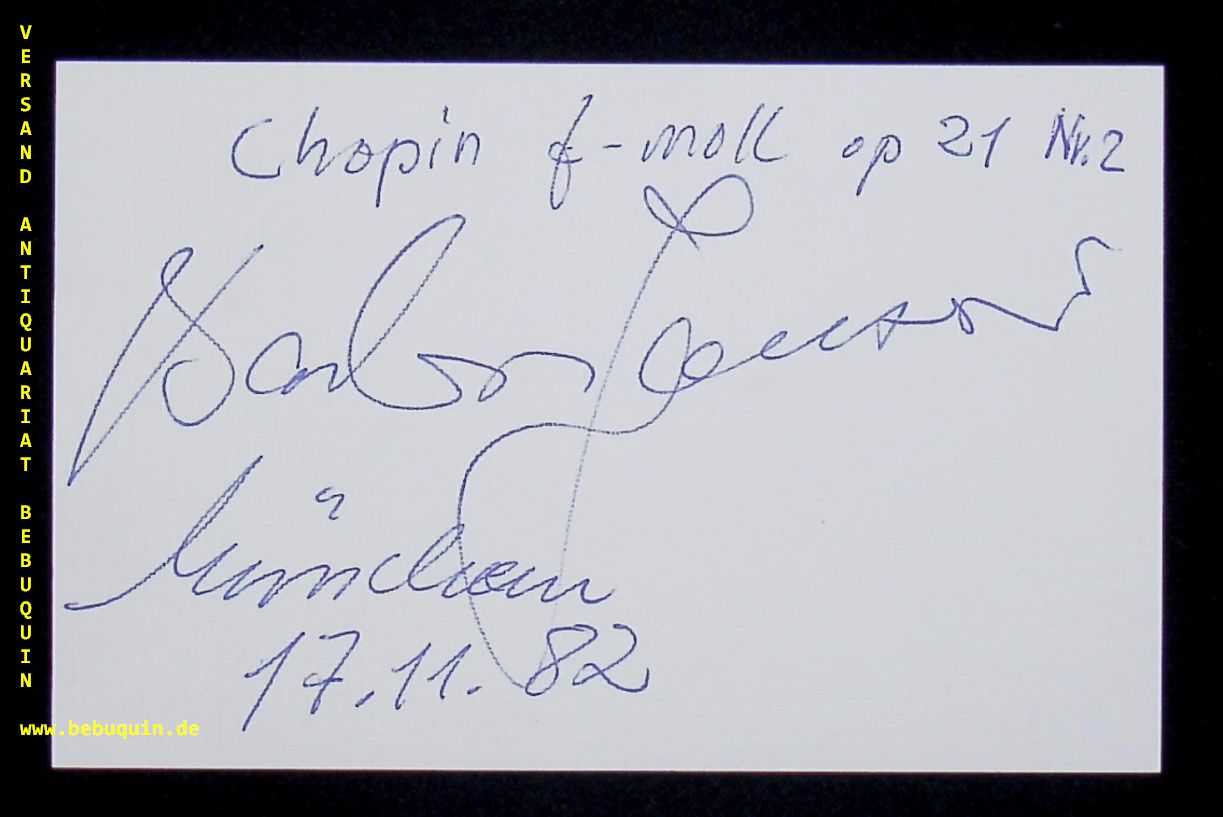 VERSAND ANTIQUARIAT BEBUQUIN
Chopin f-moll op 21 Nr. 2
München
17.11.82
www.bebuquin.de